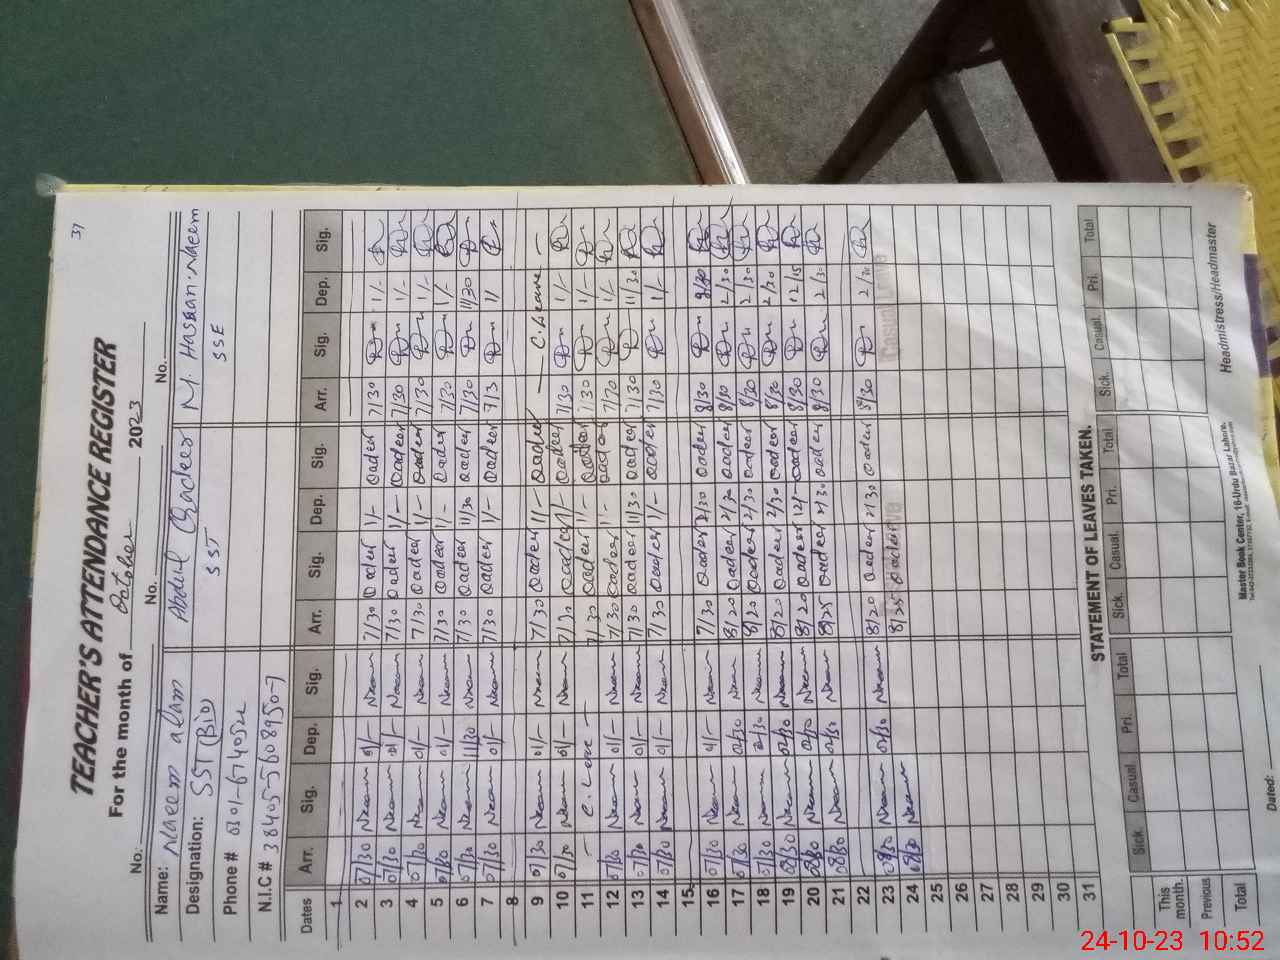 37
TEACHER'S ATTENDANCE REGISTER
For the month of October 2023
No. No. No.
Name: Naeem alam Abdul Qadeer M. Hassan Naeem
Designation: SST (BiO) SST SSE
Phone #
N.I.C # 38405-5608950-7
Dates Arr. Sig. Dep. Sig. Arr. Sig. Dep. Sig. Arr. Sig. Dep. Sig.
1
2 07/30 Naeem 01/- Naeem 7/30 Qadeer 1/- Qadeer 7/30 1/-
3 07/30 Naeem 01/- Naeem 7/30 Qadeer 1/- Qadeer 7/30 1/-
4 07/30 Naeem 01/- Naeem 7/30 Qadeer 1/- Qadeer 7/30 1/-
5 07/30 Naeem 01/- Naeem 7/30 Qadeer 1/- Qadeer 7/30 1/-
6 07/30 Naeem 11/30 Naeem 7/30 Qadeer 11/30 Qadeer 7/30 11/30
7 07/30 Naeem 01/- Naeem 7/30 Qadeer 1/- Qadeer 7/3 1/
8
9 07/30 Naeem 01/- Naeem 7/30 Qadeer 1/- Qadeer C. Leave
10 07/30 Naeem 01/- Naeem 7/30 Qadeer 1/- Qadeer 7/30 1/-
11 C. Leave 7/30 Qadeer 1/- Qadeer 7/30 1/-
12 07/30 Naeem 01/- Naeem 7/30 Qadeer 1/- Qadeer 1/-
13 07/30 Naeem 01/- Naeem 7/30 Qadeer 11/30 Qadeer 7/30 11/30
14 07/30 Naeem 01/- Naeem 7/30 Qadeer 1/- Qadeer 7/30 1/-
15
16 07/30 Naeem 01/- Naeem 7/30 Qadeer 2/30 Qadeer 8/30 2/30
17 07/30 Naeem 02/30 Naeem 8/20 Qadeer 2/30 Qadeer 8/30 2/30
18 07/30 Naeem 2/30 Naeem 8/20 Qadeer 2/30 Qadeer 8/30 2/30
19 08/30 Naeem 02/30 Naeem 8/20 Qadeer 2/30 Qadeer 8/30 2/30
20 08/30 Naeem Naeem 8/20 Qadeer 12/- Qadeer 8/30 12/15
21 08/30 Naeem 02/30 Naeem 8/25 Qadeer 2/30 Qadeer 8/30 2/30
22
23 08/30 Naeem 02/30 Naeem 8/20 Qadeer 2/30 Qadeer 8/30 2/30
24 08/30 Naeem 8/25 Qadeer
Casual Leave
25
26
27
28
29
30
31
STATEMENT OF LEAVES TAKEN.
Sick. Casual. Pri. Total Sick. Casual. Pri. Total Sick. Casual. Pri. Total
This month.
Previous
Total
Master Book Center, 16-Urdu Bazar Lahore.
Dated:
Headmistress/Headmaster
24-10-23 10:52